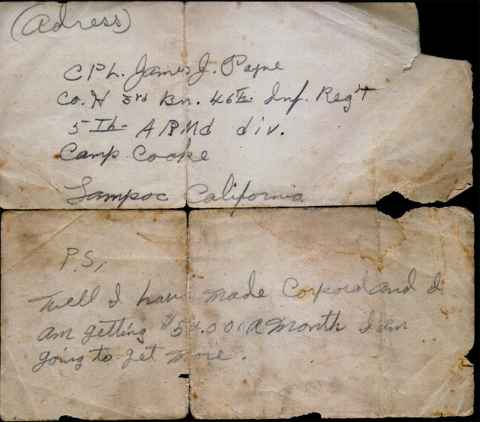 (Adress)
CPL. James J. Payne
Co. H 3rd Bn. 46th Inf. Reg't
5th ARMd div.
Camp Cooke
Lampoc California
P.S,
Well I have made Corporal and I
am getting $54.00 A Month I am
going to get more.